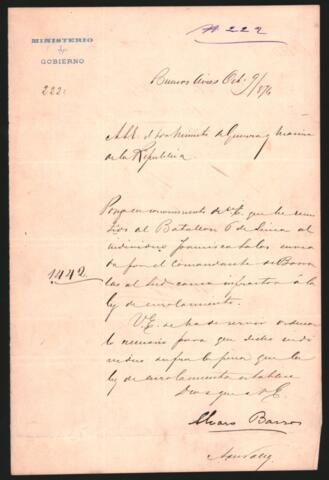 Nº 222
MINISTERIO
de
GOBIERNO
222.
Buenos Aires Oct. 9/876
A S.E. el Sor Ministro de Guerra y Marina
de la República.
Pongo en conocimiento de V.E. que he remi
tido al Batallon 6 de Linea al
individuo Francisco Salas envia
do por el Comandante de Barra
1442.
cas al Sud como infractor á la
ley de enrolamiento.
V.E. se ha de servir ordenar
lo necesario para que dicho indi
viduo sufra la pena que la
ley de enrolamiento establece
Dios gue a V.E.
Alvaro Barros